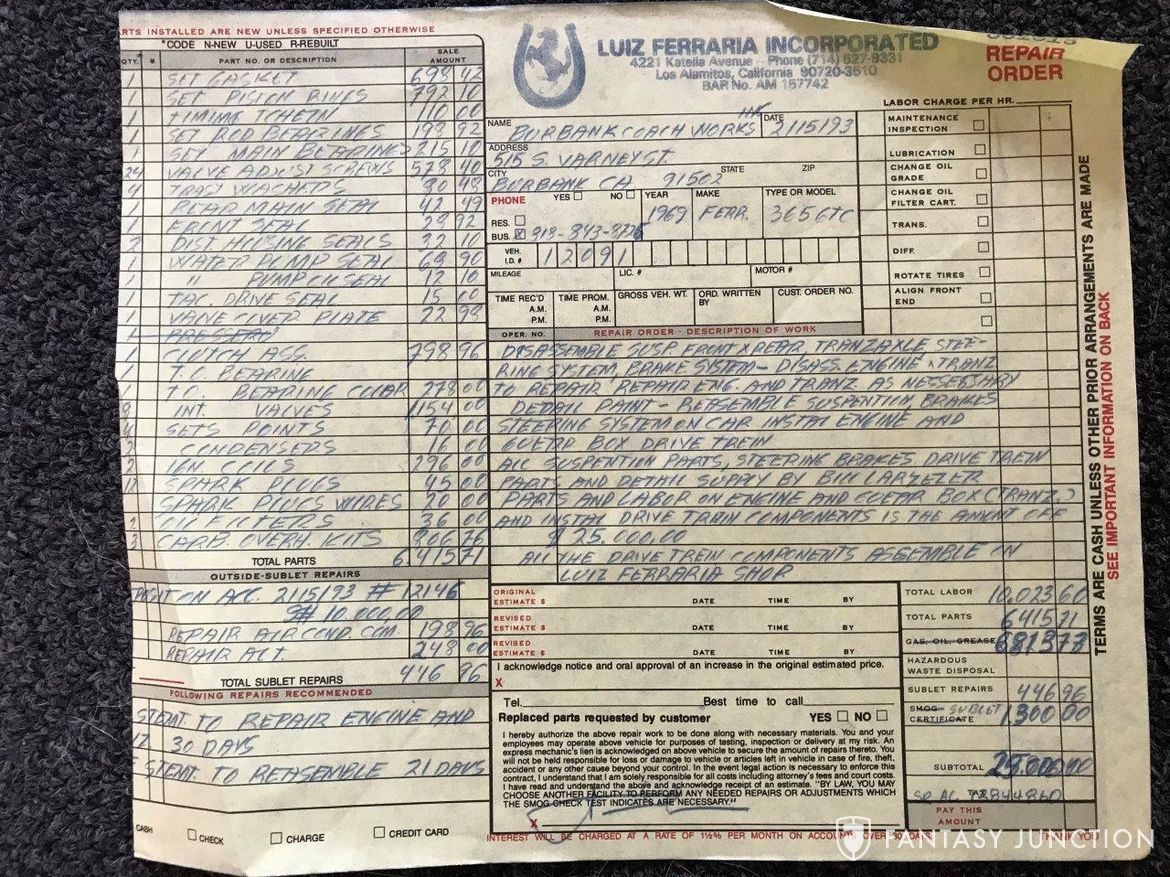 RTS INSTALLED ARE NEW UNLESS SPECIFIED OTHERWISE
*CODE N-NEW U-USED R-REBUILT
QTY. * PART NO. OR DESCRIPTION SALE AMOUNT
1 SET GASKET 698 42
1 SET PISTON RINGS 792 10
1 TIMIME TCHEIN 110 00
1 SET ROD BEARINGS 198 92
1 SET MAIN BEARINGS 215 10
24 VALVE ADJUST SCREWS 578 40
4 TRAST WACHERS 90 48
1 REAR MAIN SEAL 42 49
1 FRONT SEAL 92
2 DIST HOUSING SEALS 32 10
1 WATER PUMP SEAL 69 90
1 " PUMP OIL SEAL 12 10
1 TAC. DRIVE SEAL 15 00
1 VANE COVER PLATE 22 99
1 CLUTCH ASS. 798 96
1 T.O. BEARING
1 T.O. BEARING COLLAR 278 00
INT. VALVES 1154 00
SETS POINTS 70 00
CONDENSERS 16 00
2 IGN. COILS 296 00
SPARK PLUGS 45 00
SPARK PLUGS WIRES 20 00
2 OIL FILTERS 36 00
3 CARB. OVERH. KITS 806 76
TOTAL PARTS 6,415 71
OUTSIDE-SUBLET REPAIRS
POSIT ON ACC. 2/15/93 # 12146
$ 10,000,00
REPAIR AIR COND. COM. 198 96
REPAIR ALT. 248 00
TOTAL SUBLET REPAIRS 446 96
FOLLOWING REPAIRS RECOMMENDED
STEMT TO REPAIR ENGINE AND
30 DAYS
STEMT TO REASEMBLE 21 DAYS
CASH CHECK CHARGE CREDIT CARD
LUIZ FERRARIA INCORPORATED
4221 Katella Avenue - Phone (714) 627-9331
Los Alamitos, California 90720-3510
BAR No. AM 157742
REPAIR ORDER
LABOR CHARGE PER HR.
NAME BURBANK COACH WORKS INC DATE 2/15/93
ADDRESS 515 S. VARNEY ST.
CITY STATE ZIP
BURBANK CA 91502
PHONE YES NO YEAR MAKE TYPE OR MODEL
RES. 1969 FERR. 365 GTC
BUS. 818-843-
VEH. I.D.# 12091
MILEAGE LIC. # MOTOR #
TIME REC'D A.M. P.M. TIME PROM. A.M. P.M. GROSS VEH. WT. ORD. WRITTEN BY CUST. ORDER NO.
MAINTENANCE INSPECTION
LUBRICATION
CHANGE OIL GRADE
CHANGE OIL FILTER CART.
TRANS.
DIFF.
ROTATE TIRES
ALIGN FRONT END
OPER. NO. REPAIR ORDER - DESCRIPTION OF WORK
DISASSEMBLE SUSP. FRONT & REAR TRANZAXLE STEE-
RING SYSTEM, BRAKE SYSTEM - DISASS. ENGINE & TRANZ
TO REPAIR. REPAIR ENG. AND TRANZ AS NESSESSARY
DETAIL PAINT - REASEMBLE SUSPENTION BRAKES
STEERING SYSTEM ON CAR INSTAL ENGINE AND
GUERD BOX DRIVE TREIN
ALL SUSPENTION PARTS, STEERING BRAKES DRIVE TREIN
PARTS AND DETAIL SUPPLY BY BILL
PARTS AND LABOR ON ENGINE AND GUEAR BOX (TRANZ.)
AND INSTAL DRIVE TRAIN COMPONENTS IS THE AMONT OFF
$ 25.000.00
ALL THE DRIVE TREIN COMPONENTS ASSEMBLE ON
LUIZ FERRARIA SHOP
ORIGINAL ESTIMATE $ DATE TIME BY
REVISED ESTIMATE $ DATE TIME BY
REVISED ESTIMATE $ DATE TIME BY
I acknowledge notice and oral approval of an increase in the original estimated price.
X
Tel. Best time to call
Replaced parts requested by customer YES NO
I hereby authorize the above repair work to be done along with necessary materials. You and your
employees may operate above vehicle for purposes of testing, inspection or delivery at my risk. An
express mechanic's lien is acknowledged on above vehicle to secure the amount of repairs thereto. You
will not be held responsible for loss or damage to vehicle or articles left in vehicle in case of fire, theft,
accident or any other cause beyond your control. In the event legal action is necessary to enforce this
contract, I understand that I am solely responsible for all costs including attorney's fees and court costs.
I have read and understand the above and acknowledge receipt of an estimate. "BY LAW, YOU MAY
CHOOSE ANOTHER FACILITY TO PERFORM ANY NEEDED REPAIRS OR ADJUSTMENTS WHICH
THE SMOG CHECK TEST INDICATES ARE NECESSARY."
X
INTEREST WILL BE CHARGED AT A RATE OF 1½% PER MONTH ON ACCOUNTS OVER 30 DAYS
TOTAL LABOR 10,023 60
TOTAL PARTS 6415 71
GAS, OIL, GREASE 6813 73
HAZARDOUS WASTE DISPOSAL
SUBLET REPAIRS 446 96
SMOG CERTIFICATE SUBLET 1,300 00
SUBTOTAL 25,000 00
TAX
PAY THIS AMOUNT
THANK YOU
TERMS ARE CASH UNLESS OTHER PRIOR ARRANGEMENTS ARE MADE
SEE IMPORTANT INFORMATION ON BACK
FANTASY JUNCTION